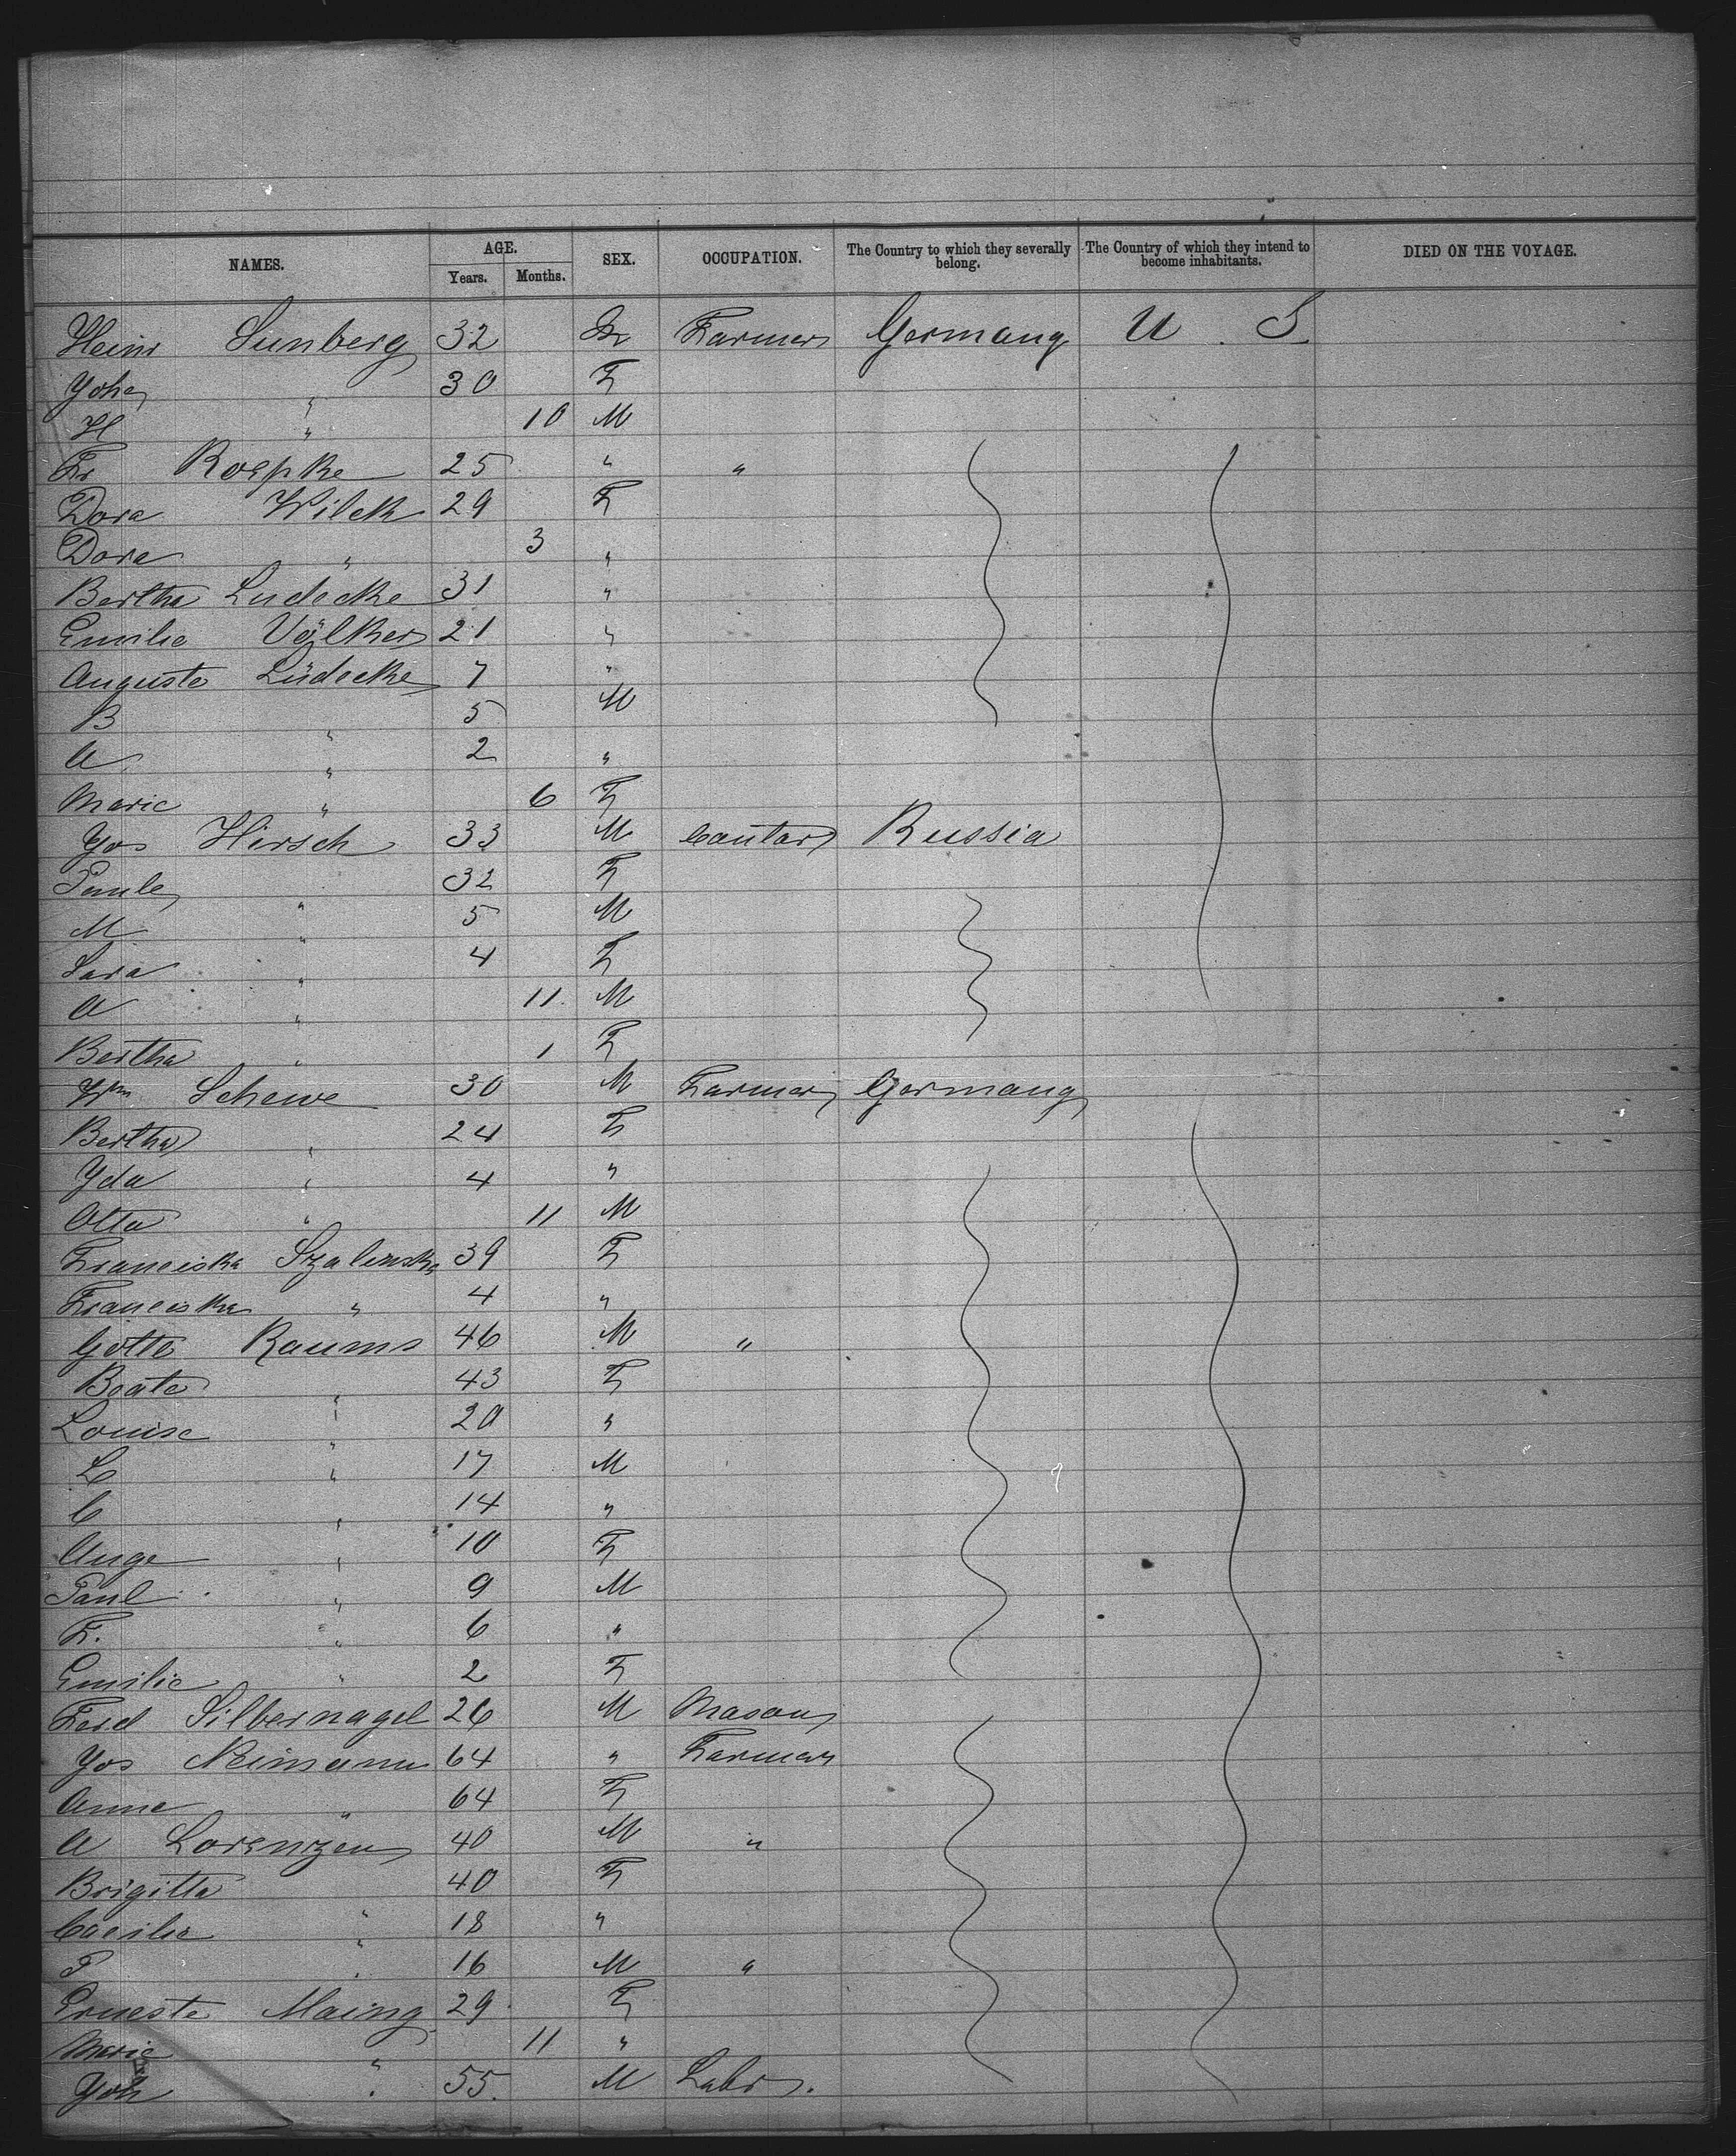 NAMES. AGE. Years. Months. SEX. OCCUPATION. The Country to which they severally belong. The Country of which they intend to become inhabitants. DIED ON THE VOYAGE.
Heinr Sunberg 32 M Farmer Germany U. S
Yoha " 30 F
H " 10 M
Fr Roepke 25 " "
Dora Wilck 29 F
Dora " 3 "
Bertha Ludecke 31 "
Emilie Völker 21 "
Auguste Lüdecke 7 "
B " 5 M
A " 2 "
Marie " 6 F
Jos Hirsch 33 M Cantor Russia
Paule " 32 F
M " 5 M
Sara " 4 F
A " 11 M
Bertha " 1 F
Wm Schewe 30 M Farmer Germany
Bertha " 24 F
Yda " 4 "
Otto " 11 M
Franciska Szalinska 39 F
Franciska " 4 "
Gotte Raums 46 M "
Beate " 43 F
Louise " 20 "
L " 17 M
C " 14 "
Auge " 10 F
Paul " 9 M
F. " 6 "
Emilie " 2 F
Ferd Silbernagel 26 M Mason
Jos Neimann 64 " Farmer
Anna " 64 F
A Lorenzen 40 M "
Brigitta " 40 F
Caecilie " 18 "
P " 16 M "
Erneste Maing 29 F
Marie " 11 "
Joh " 55. M Labr.